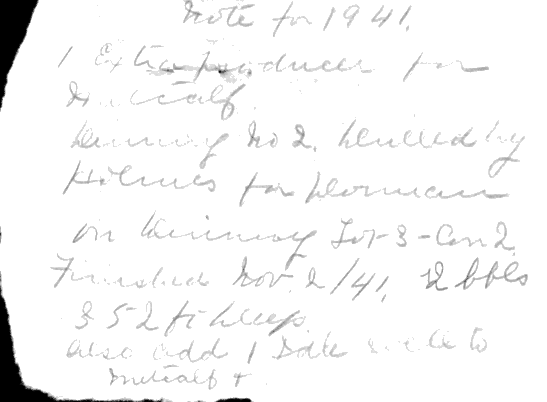 Note for 1941.
1 Extra producer for
Metcalf
No 2. Drilled by
Holmes for
on Lot 3 - Con 2.
Finished Nov. 2/41, 12 bbls
352 ft deep
also add 1 well to
Metcalf +